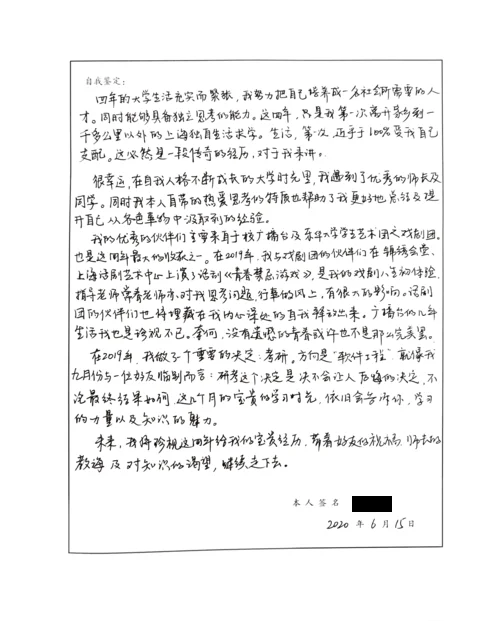 自我鉴定：
四年的大学生活充实而紧张，我努力把自己培养成一名社会所需要的人
才。同时能够具备独立思考的能力。这四年，是我第一次离开家乡到一
千多公里以外的上海独自生活求学。生活，第一次近乎于100%受我自己
支配。这必然是一段传奇的经历，对于我来讲。
很幸运，在自我人格不断成长的大学时光里，我遇到了优秀的师长及
同学。同时我本人自带的热爱思考的特质也帮助了我更好地总结及提
升自己从各色事物中汲取到的经验。
我的优秀的伙伴们主要来自于校广播台及东华大学学生艺术团之戏剧团。
也是这四年最大的收获之一。在2019年，我与戏剧团的伙伴们在锦绣会堂、
上海话剧艺术中心上演了话剧《青春禁忌游戏》，是我的戏剧人生初体验，
指导老师常春老师亦对我思考问题，行事的风上，有很大的影响。话剧
团的伙伴们也将埋藏在我内心深处的自我释放出来。广播台的几年
生活我也是珍视不已。奈何，没有遗憾的青春或许也不是那么完美罢。
在2019年，我做了个重要的决定：考研。方向是"软件工程"。就像我
九月份与一位好友临别而言：研考这个决定是决不会让人后悔的决定，不
论最终结果如何，这几个月的宝贵的学习时光，依旧会告诉你，学习
的力量以及知识的魅力。
未来，我将珍视这四年给我的宝贵经历，带着好友的祝福，师长的
教诲及对知识的渴望，继续走下去。
本人签名
2020 年 6 月 15 日